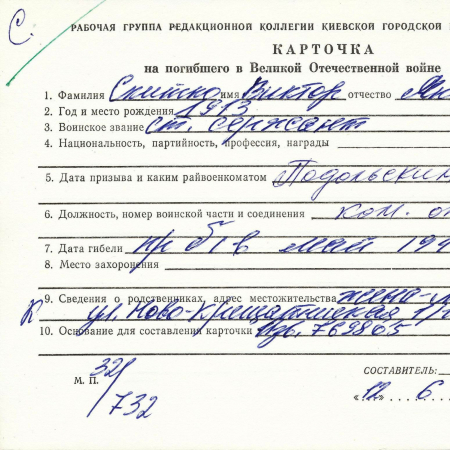 С.
РАБОЧАЯ ГРУППА РЕДАКЦИОННОЙ КОЛЛЕГИИ КИЕВСКОЙ ГОРОДСКОЙ
КАРТОЧКА
на погибшего в Великой Отечественной войне
1. Фамилия Скитко имя Виктор отчество
2. Год и место рождения 1913
3. Воинское звание ст. сержант
4. Национальность, партийность, профессия, награды
5. Дата призыва и каким райвоенкоматом Подольским
6. Должность, номер воинской части и соединения ком. от
7. Дата гибели пр б/в май 194
8. Место захоронения
9. Сведения о родственниках, адрес местожительства жена-
К ул. Ново-Крещатинская
10. Основание для составления карточки Изв. 769865
СОСТАВИТЕЛЬ:
М. П. 32/732
«12» 6